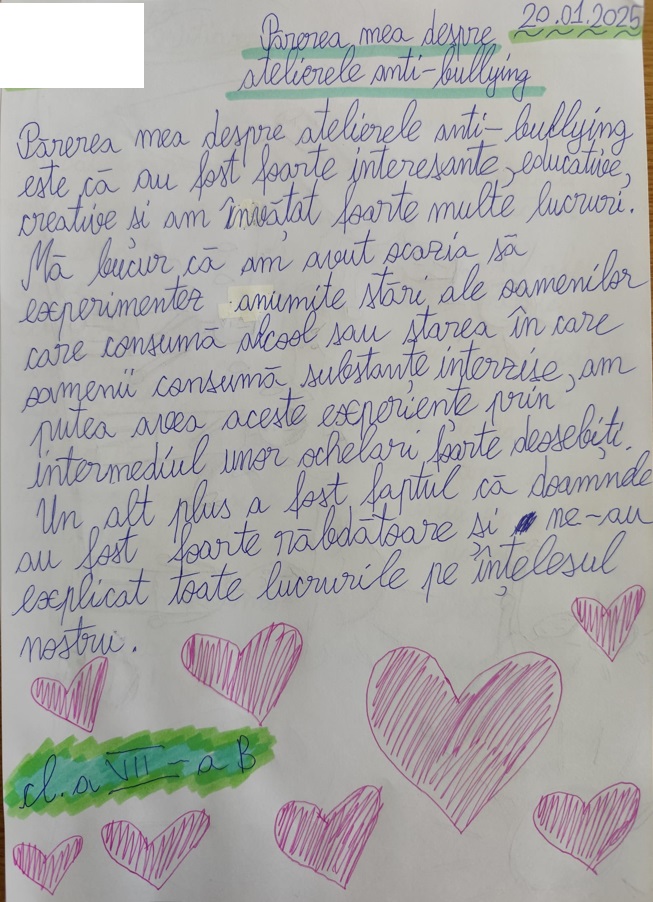 20.01.2025
Părerea mea despre
atelierele anti-bullying
Părerea mea despre atelierele anti-bullying
este că au fost foarte interesante, educative,
creative și am învățat foarte multe lucruri.
Mă bucur că am avut ocazia să
experimentez anumite stări ale oamenilor
care consumă alcool sau starea în care
oamenii consumă substanțe interzise, am
putea avea aceste experiențe prin
intermediul unor ochelari foarte deosebiți.
Un alt plus a fost faptul că doamnele
au fost foarte răbdătoare și ne-au
explicat toate lucrurile pe înțelesul
nostru.
cl. a VII-a B